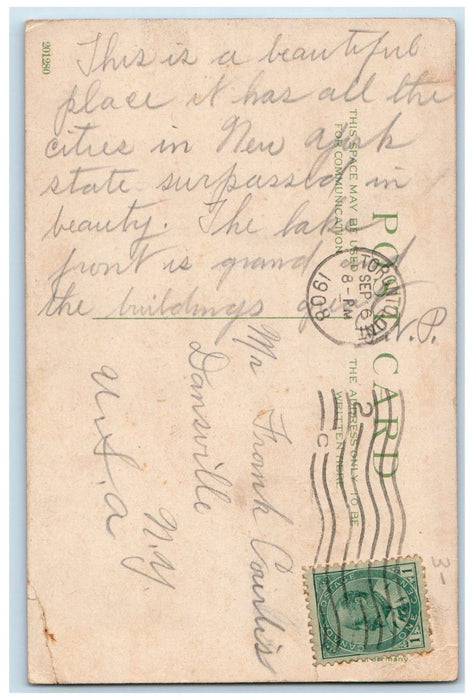 This is a beautiful
place it has all the
cities in New York
state surpassed in
beauty. The lake
front is grand and
the buildings
N.P.
Mr Frank Curtis
Dansville
N.Y.
U.S.A
201280
POST CARD
THIS SPACE MAY BE USED
FOR COMMUNICATION
THE ADDRESS ONLY TO BE
WRITTEN HERE
TORONTO, ONT.
SEP 6
8-PM
1908
2
C
3-
CANADA POSTAGE
ONE CENT
1 1
Germany